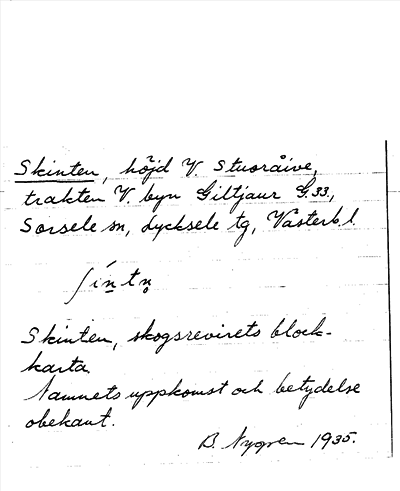 Skinten, höjd V. Stuoråive,
trakten V. byn Giltjaur G.33.,
Sorsele sn, Lycksele tg, Västerb. l.
ʃíṉtn̥
Skinten, skogsrevirets block-
karta
Namnets uppkomst och betydelse
obekant.
B. Nygren 1935.